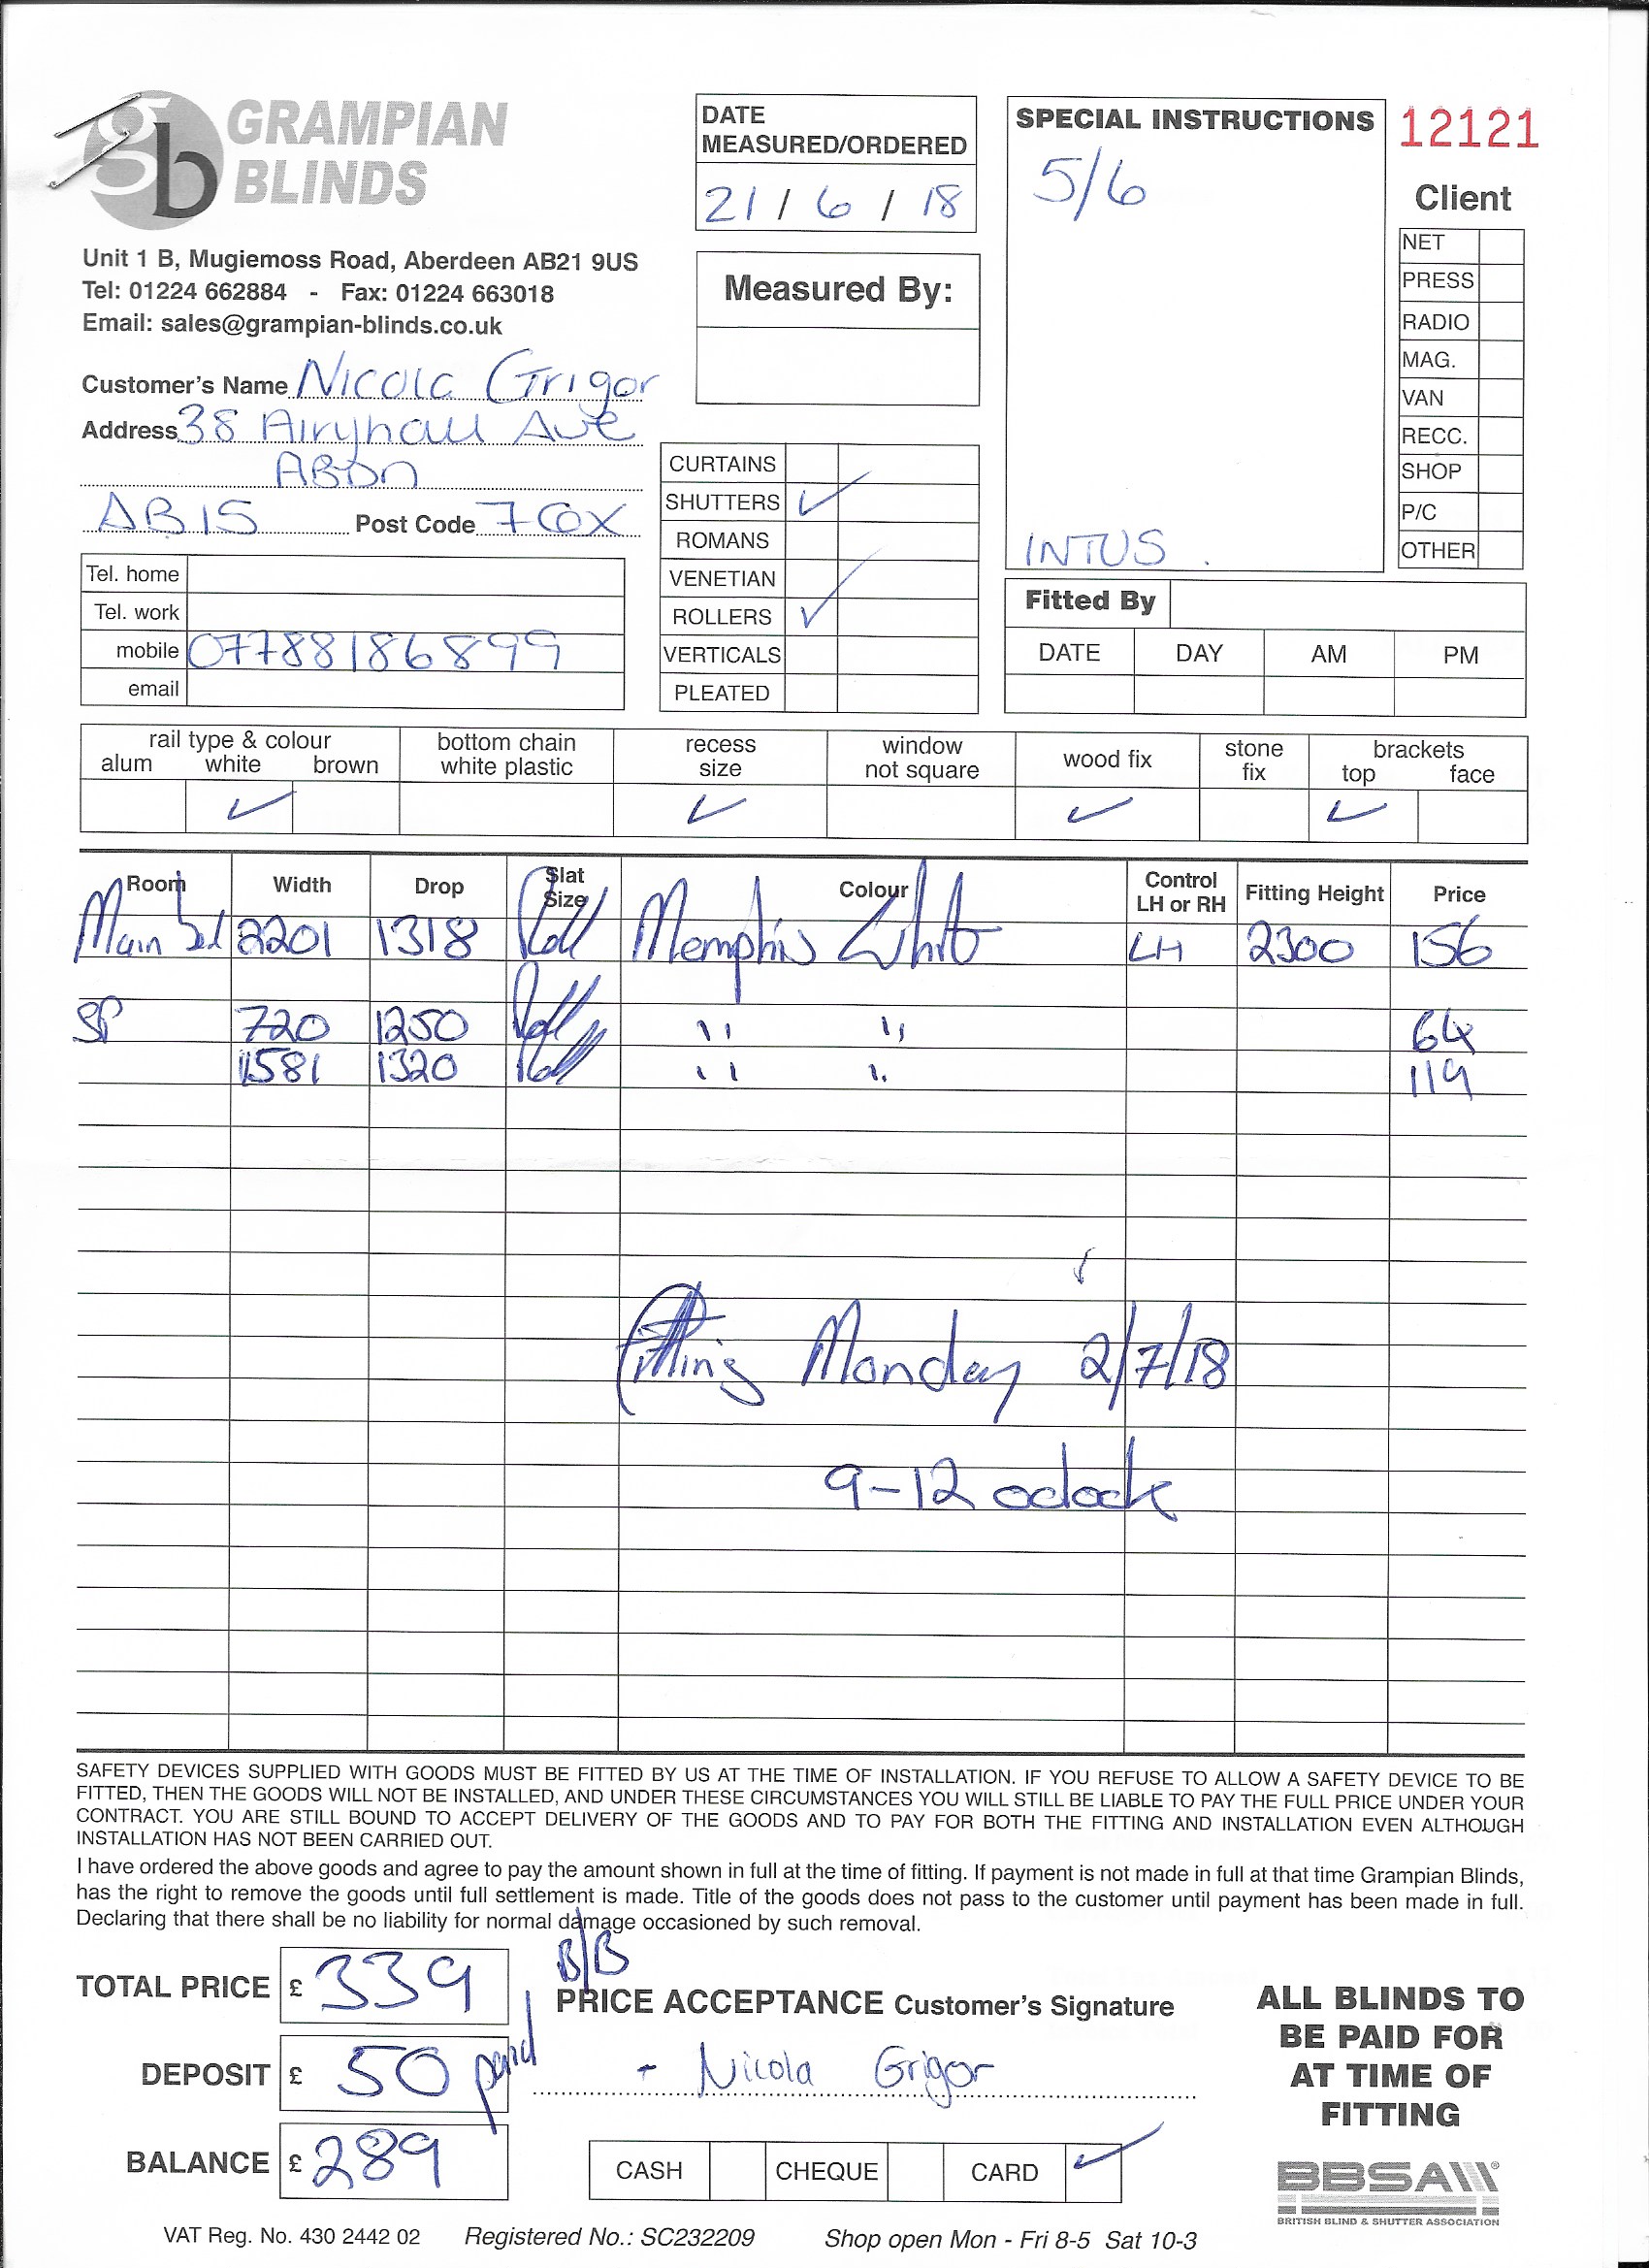 gb GRAMPIAN
BLINDS
Unit 1 B, Mugiemoss Road, Aberdeen AB21 9US
Tel: 01224 662884 - Fax: 01224 663018
Email: sales@grampian-blinds.co.uk
Customer's Name Nicola Grigor
Address 38 Airyhall Ave
ABDN
AB15 Post Code 7QX
Tel. home
Tel. work
mobile 07788186899
email
DATE
MEASURED/ORDERED
21 / 6 / 18
Measured By:
CURTAINS
SHUTTERS ✓
ROMANS
VENETIAN
ROLLERS ✓
VERTICALS
PLEATED
SPECIAL INSTRUCTIONS
5/6
INTUS.
12121
Client
NET
PRESS
RADIO
MAG.
VAN
RECC.
SHOP
P/C
OTHER
Fitted By
DATE DAY AM PM
rail type & colour bottom chain recess window wood fix stone brackets
alum white brown white plastic size not square fix top face
✓ ✓ ✓ ✓
Room Width Drop Slat Size Colour Control LH or RH Fitting Height Price
Main bed 2201 1318 Roll Memphis White LH 2300 156
SP 720 1250 Roll " " 64
1581 1320 Roll " " 119
Fitting Monday 2/7/18
9-12 oclock
SAFETY DEVICES SUPPLIED WITH GOODS MUST BE FITTED BY US AT THE TIME OF INSTALLATION. IF YOU REFUSE TO ALLOW A SAFETY DEVICE TO BE
FITTED, THEN THE GOODS WILL NOT BE INSTALLED, AND UNDER THESE CIRCUMSTANCES YOU WILL STILL BE LIABLE TO PAY THE FULL PRICE UNDER YOUR
CONTRACT. YOU ARE STILL BOUND TO ACCEPT DELIVERY OF THE GOODS AND TO PAY FOR BOTH THE FITTING AND INSTALLATION EVEN ALTHOUGH
INSTALLATION HAS NOT BEEN CARRIED OUT.
I have ordered the above goods and agree to pay the amount shown in full at the time of fitting. If payment is not made in full at that time Grampian Blinds,
has the right to remove the goods until full settlement is made. Title of the goods does not pass to the customer until payment has been made in full.
Declaring that there shall be no liability for normal damage occasioned by such removal.
B/B
TOTAL PRICE £ 339
PRICE ACCEPTANCE Customer's Signature
DEPOSIT £ 50 paid
Nicola Grigor
BALANCE £ 289
CASH CHEQUE CARD ✓
ALL BLINDS TO
BE PAID FOR
AT TIME OF
FITTING
BBSA
BRITISH BLIND & SHUTTER ASSOCIATION
VAT Reg. No. 430 2442 02 Registered No.: SC232209 Shop open Mon - Fri 8-5 Sat 10-3